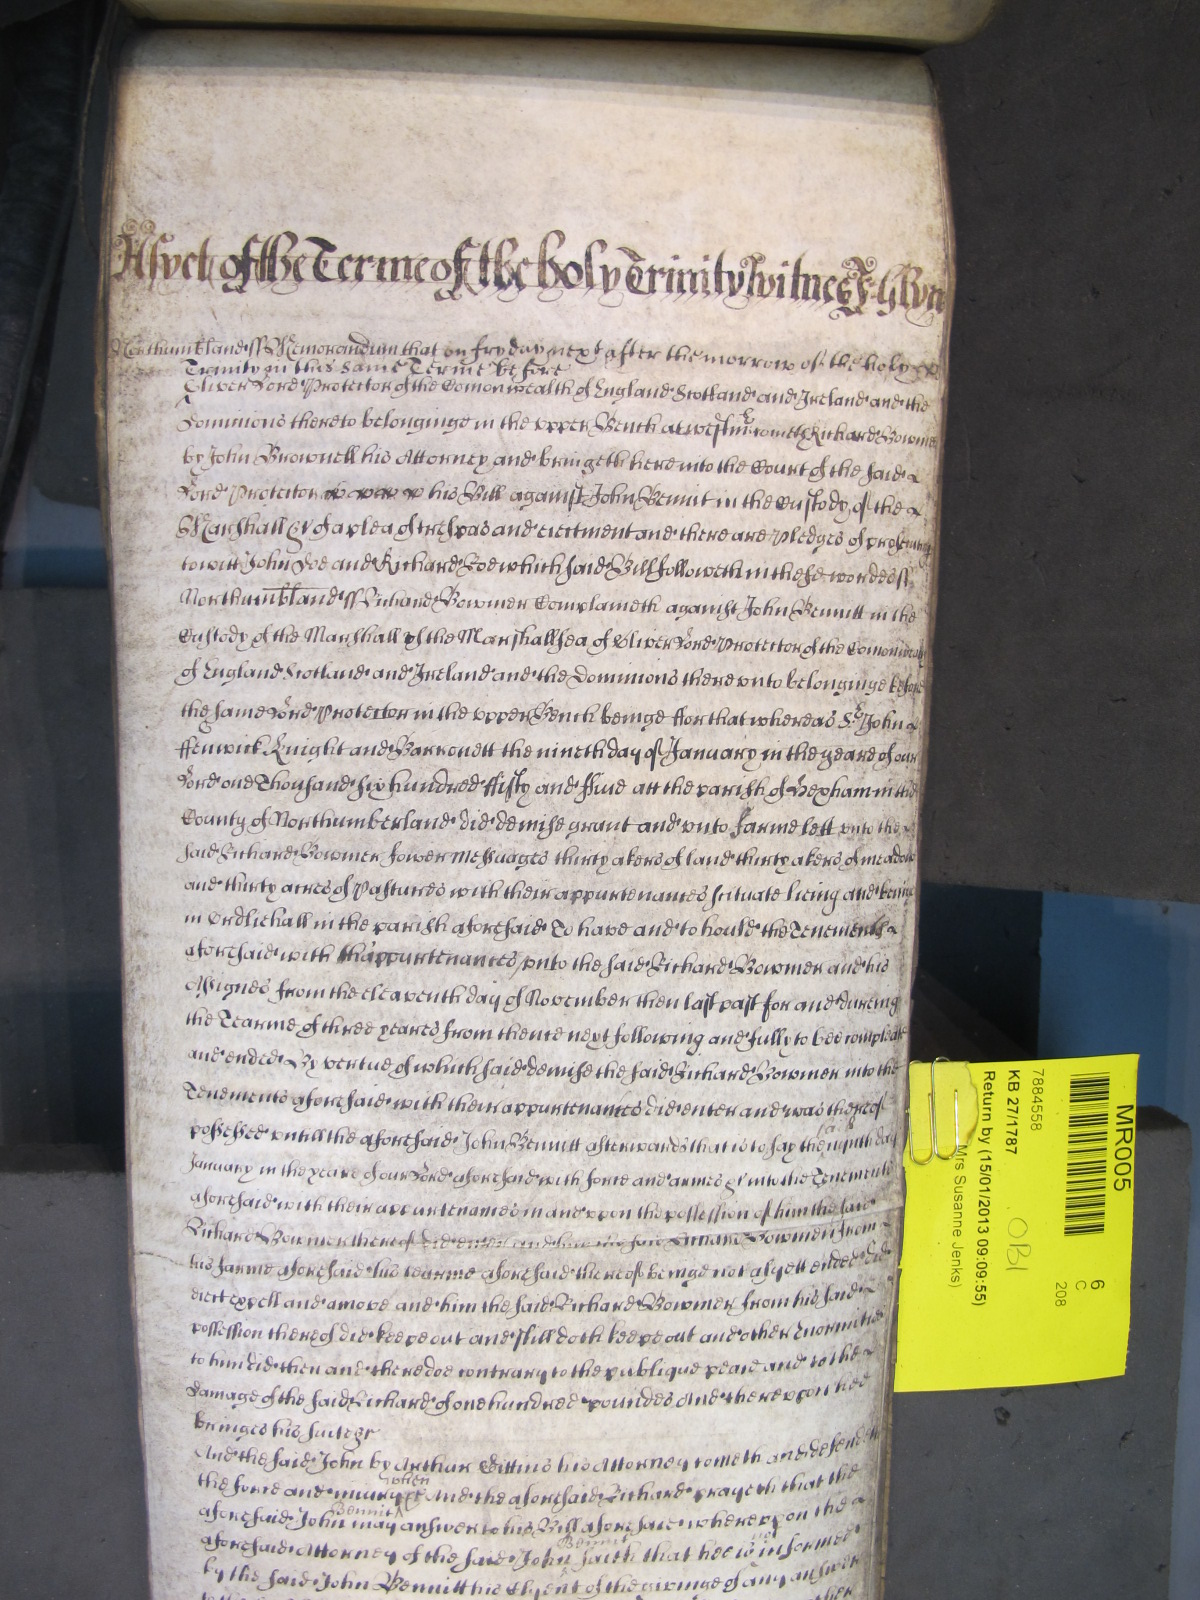 As yet of the Terme of the holy Trinity Witnes J: Glyn
Northumbland ss Memorandum that on fryday next after the morrow of the holy
Trinity in this same Terme before
Oliver Lord Protector of the Comonwealth of England Scotland and Ireland and the
Dominions thereto belonginge in the vpper Bench at westmr cometh Richard Bowmer
by John Brownell his Attorney and bringeth here into the Court of the said
Lord Protector his Bill against John Bennit in the Custody of the
Marshall &c of a plea of trespas and eiectment and there are pledges of prosecuting
to witt John Doe and Richard Roe which said Bill followeth in these wordes ss
Northumbland ss Richard Bowmer Complaineth against John Bennitt in the
Custody of the Marshall of the Marshallsea of Oliver Lord Protector of the Comonwealth
of England Scotland and Ireland and the Dominions therevnto belonginge before
the same Lord Protector in the vpper Bench beinge ffor that whereas Sr John
ffenwick Knight and Barronett the nineth day of January in the yeare of our
Lord one Thousand six hundred ffifty and ffiue att the parish of Hexham in the
County of Northumberland did demise grant and vnto farme lett vnto the
said Richard Bowmer fower Messuages thirty akers of land thirty akers of meadow
and thirty acres of Pastures with their appurtenances scituate lieing and being
in Ordlichall in the parish aforesaid To have and to hould the Tenements
aforesaid with thappurtenances vnto the said Richard Bowmer and his
Assignes from the eleaventh day of November then last past for and dureing
the Tearme of three yeares from thence next following and fully to bee compleate
and ended By vertue of which said demise the said Richard Bowmer into the
Tenements aforesaid with their appurtenances did enter and was thereof
possessed vntill the aforesaid John Bennitt afterwards that is to say the said ninth day
January in the yeare of our Lord aforesaid with force and armes &c into the Tenements
aforesaid with their appurtenances in and vpon the possession of him the said
Richard Bowmer thereof did enter and him the said Richard Bowmer from
his farme aforesaid his tearme aforesaid thereof beinge not as yett ended did
eiect expell and amove and him the said Richard Bowmer from his said
possession thereof did keepe out and still doth keepe out and other Enormities
to him did then and there doe contrary to the publique peace and to the
damage of the said Richard of one hundred poundes And therevpon hee
bringes his suite &c
And the said John by Arthur Gittins his Attorney cometh and defendeth
the force and iniury when &c And the aforesaid Richard prayeth that the
aforesaid John Bennit may answer to his Bill aforesaid wherevpon the
aforesaid Attorney of the said John Bennit saith that hee is not informed
by the said John Bennitt his Clyent of the giveinge of any answer
MR005
6
C
208
7884558
KB 27/1787
OBI
Return by (15/01/2013 09:09:55)
Mrs Susanne Jenks)